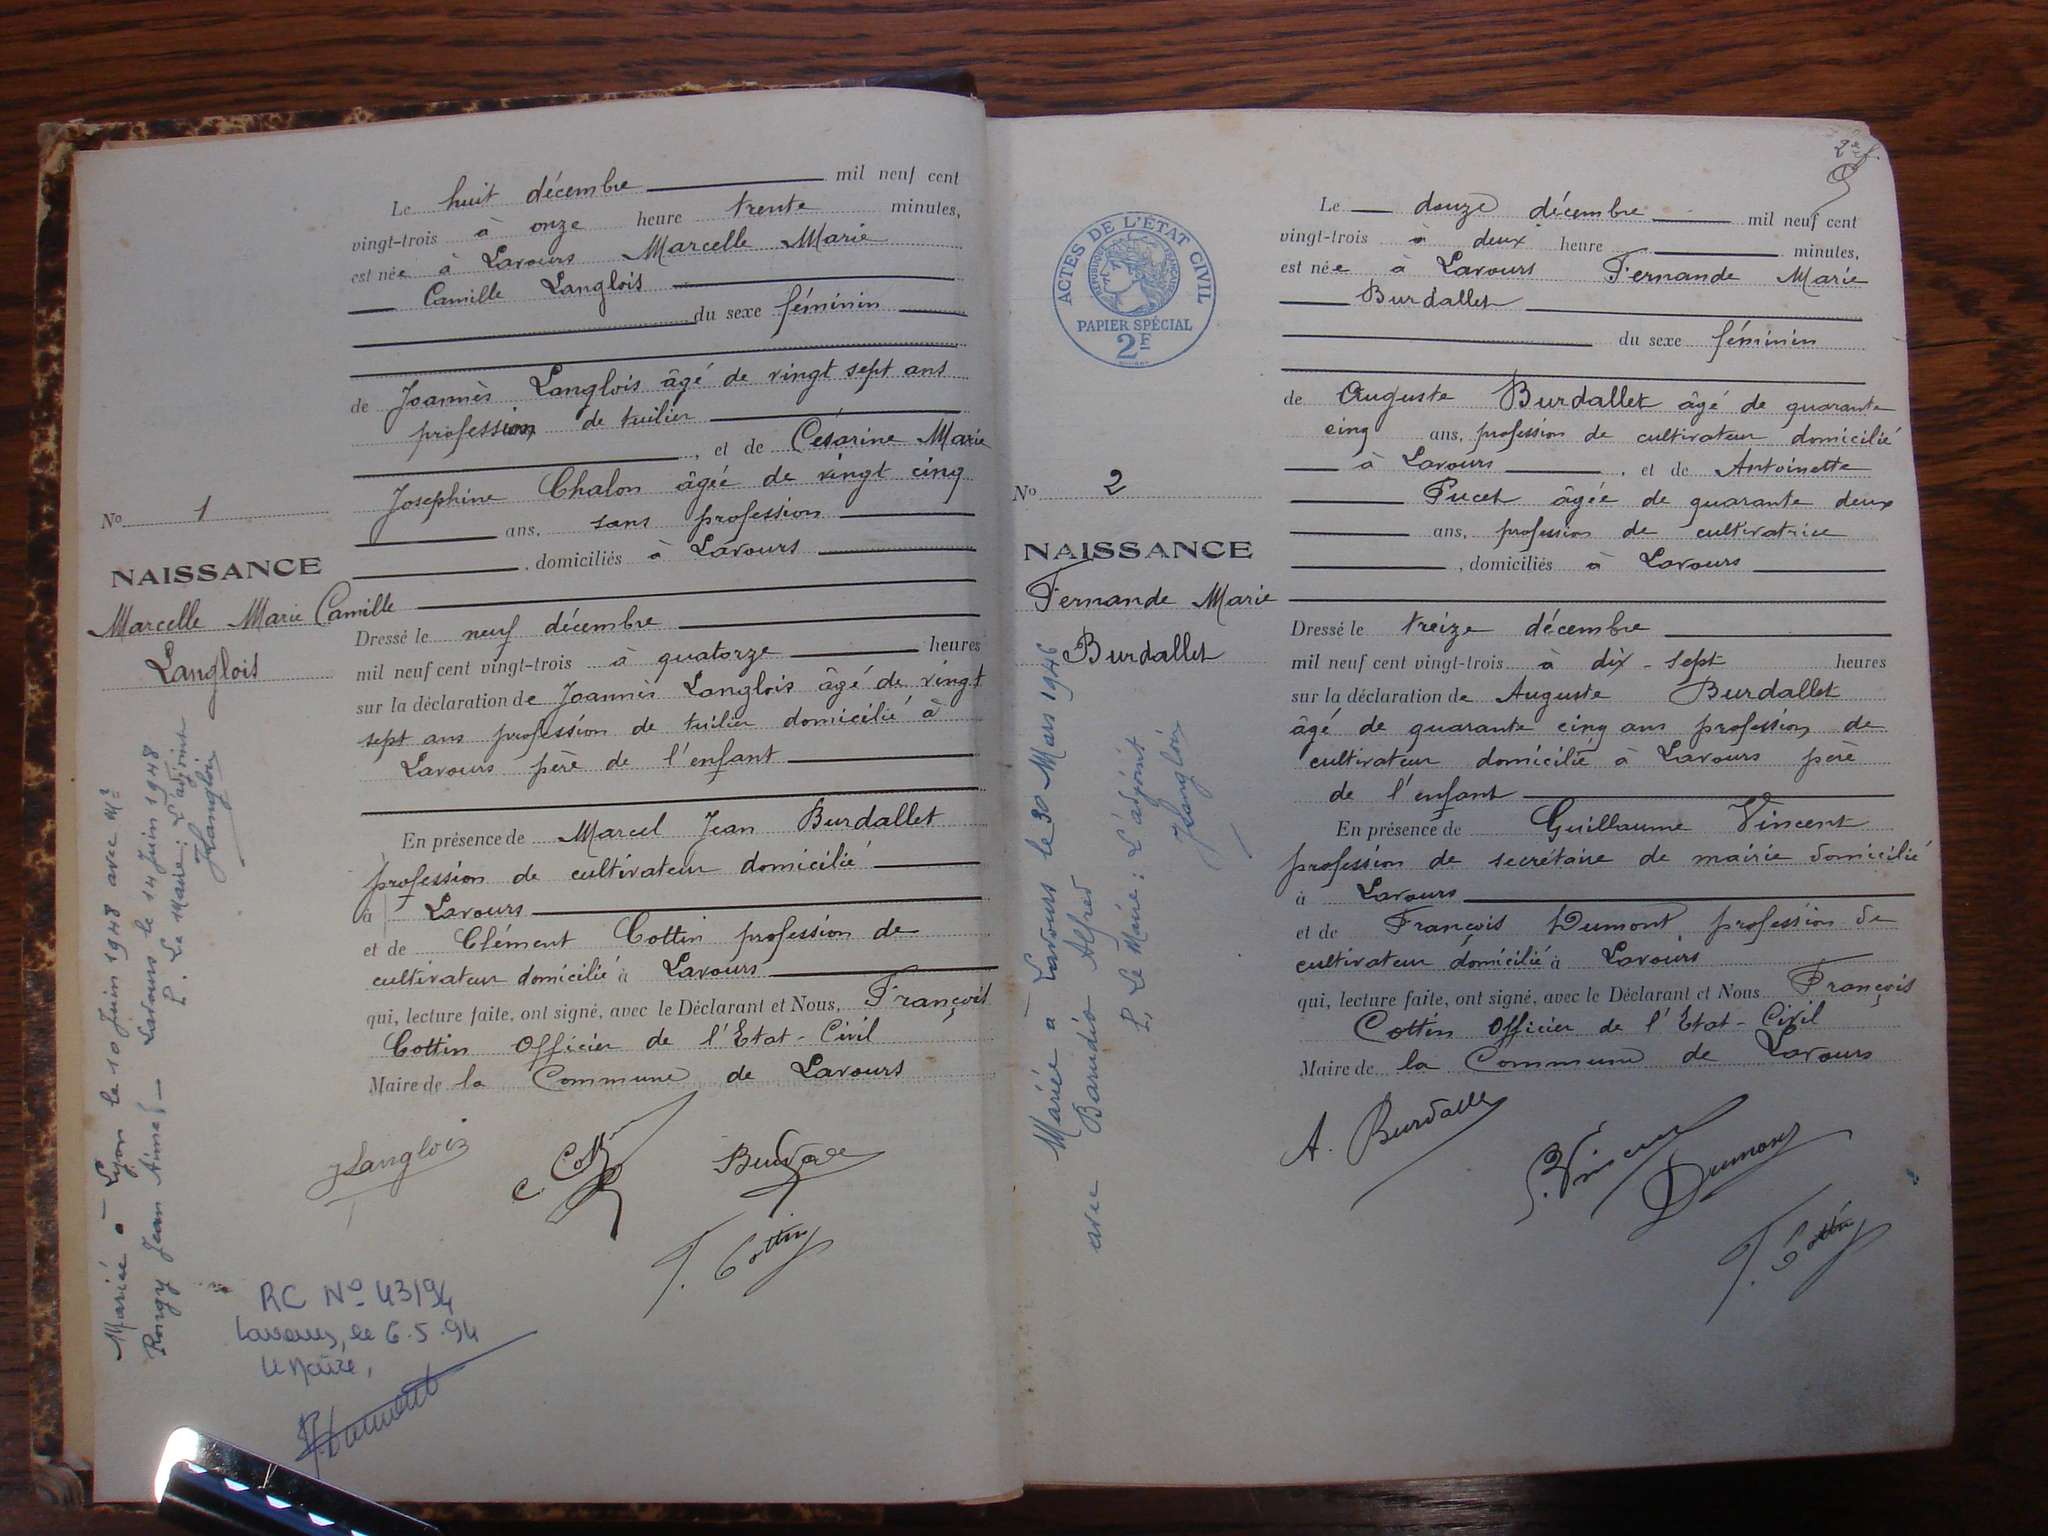 Le huit décembre mil neuf cent
vingt-trois à onze heure trente minutes,
est née à Lavours Marcelle Marie
Camille Langlois
du sexe féminin
de Joannès Langlois âgé de vingt sept ans
profession de tuilier
, et de Césarine Marie
Josephine Chalon âgée de vingt cinq
ans, sans profession
, domiciliés à Lavours
Dressé le neuf décembre
mil neuf cent vingt-trois à quatorze heures
sur la déclaration de Joannès Langlois âgé de vingt
sept ans profession de tuilier domicilié à
Lavours père de l'enfant
En présence de Marcel Jean Burdallet
profession de cultivateur domicilié
à Lavours
et de Clément Cottin profession de
cultivateur domicilié à Lavours
qui, lecture faite, ont signé, avec le Déclarant et Nous, François
Cottin Officier de l'Etat-Civil
Maire de la Commune de Lavours
JLanglois
F. Cottin
No 1
NAISSANCE
Marcelle Marie Camille
Langlois
Mariée à Lyon le 10 Juin 1948 avec Mr
Rongy Jean Aimé - Lavours le 14 Juin 1948
P. Le Maire: L'adjoint
JLanglois
RC No 43/94
Lavours, le 6.5.94
Le Maire,
2e f.
ACTES DE L'ÉTAT CIVIL
RÉPUBLIQUE FRANÇAISE
PAPIER SPÉCIAL
2F
No 2
NAISSANCE
Fernande Marie
Burdallet
Mariée à Lavours le 30 Mars 1946
avec Barudio Alfred
P. Le Maire: L'adjoint
JLanglois
Le douze décembre mil neuf cent
vingt-trois à deux heure minutes,
est née à Lavours Fernande Marie
Burdallet
du sexe féminin
de Auguste Burdallet âgé de quarante
cinq ans, profession de cultivateur domicilié
à Lavours , et de Antoinette
Pucet âgée de quarante deux
ans, profession de cultivatrice
, domiciliés à Lavours
Dressé le treize décembre
mil neuf cent vingt-trois à dix-sept heures
sur la déclaration de Auguste Burdallet
âgé de quarante cinq ans profession de
cultivateur domicilié à Lavours père
de l'enfant
En présence de Guillaume Vincent
profession de secrétaire de mairie domicilié
à Lavours
et de François Dumont profession de
cultivateur domicilié à Lavours
qui, lecture faite, ont signé, avec le Déclarant et Nous François
Cottin Officier de l'Etat-Civil
Maire de la Commune de Lavours
A. Burdalle
G. Vincent
Dumont
F. Cottin